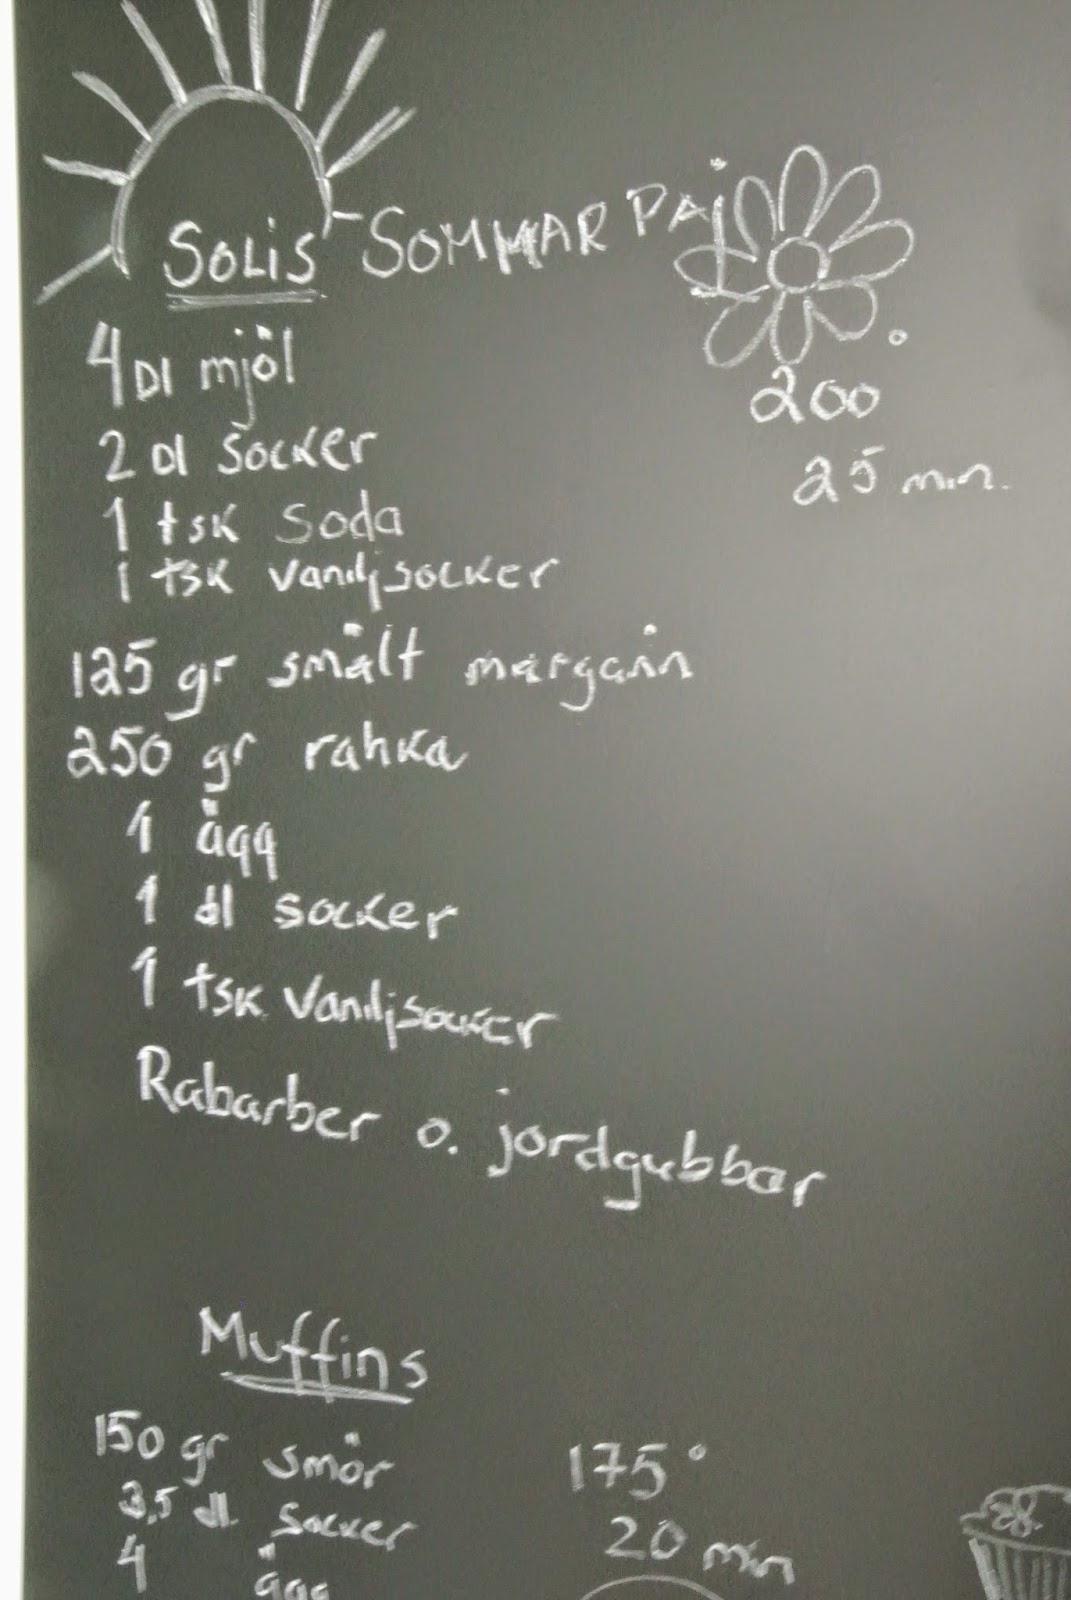 SOLIS-SOMMARPAJ
4 Dl mjöl
2 dl socker
1 tsk soda
1 tsk vaniljsocker
125 gr smält margarin
250 gr rahka
1 ägg
1 dl socker
1 tsk vaniljsocker
Rabarber o. jordgubbar
200°
25 min.
Muffins
150 gr smör
3,5 dl socker
4 ägg
175°
20 min